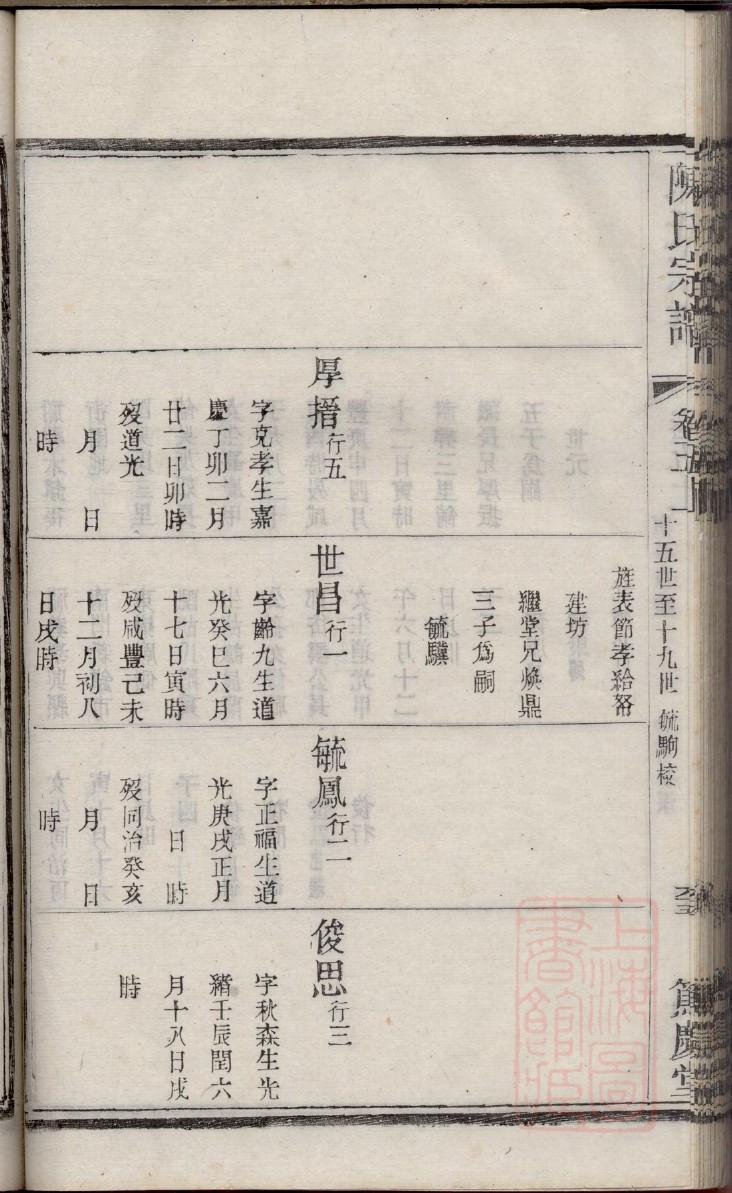 陳氏宗譜
卷五上
十五世至十九世 毓駒校
篤慶堂
厚搢 行五
字克孝生嘉
慶丁卯二月
廿二日卯時
歿道光
月 日
時
旌表節孝給帑
建坊
繼堂兄煥鼎
三子為嗣
毓驥
世昌 行一
字齡九生道
光癸巳六月
十七日寅時
歿咸豐己未
十二月初八
日戌時
毓鳳 行二
字正福生道
光庚戌正月
日 時
歿同治癸亥
月 日
時
俊思 行三
字秋森生光
緒壬辰閏六
月十八日戌
時
上海圖書館藏